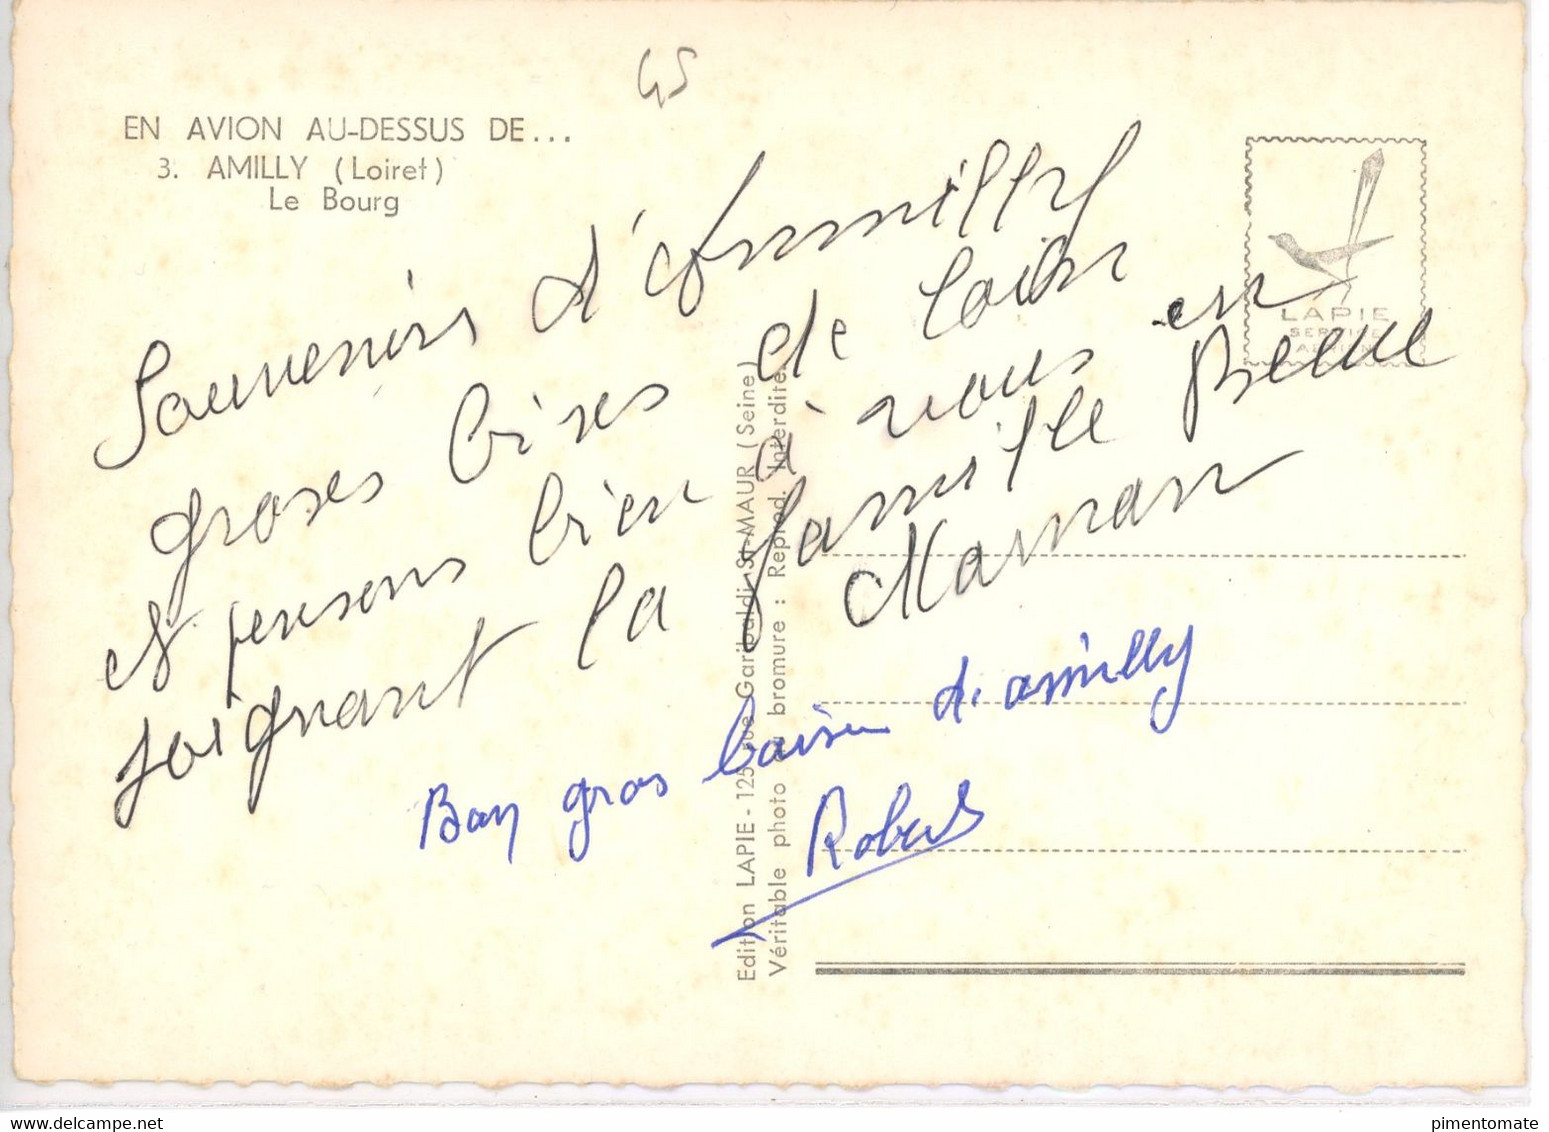 45
EN AVION AU-DESSUS DE...
3. AMILLY (Loiret)
Le Bourg
LAPIE
SERVICE
AERIEN
Souvenirs d'Ammilly
groses bises de loin
et pensons bien à vous en
joignant la famille
Maman
Bon gros baiser d'amilly
Robert
Edition LAPIE - 125, rue Garibaldi, St-MAUR (Seine)
Véritable photo au bromure : Reprod. Interdite
pimentomate